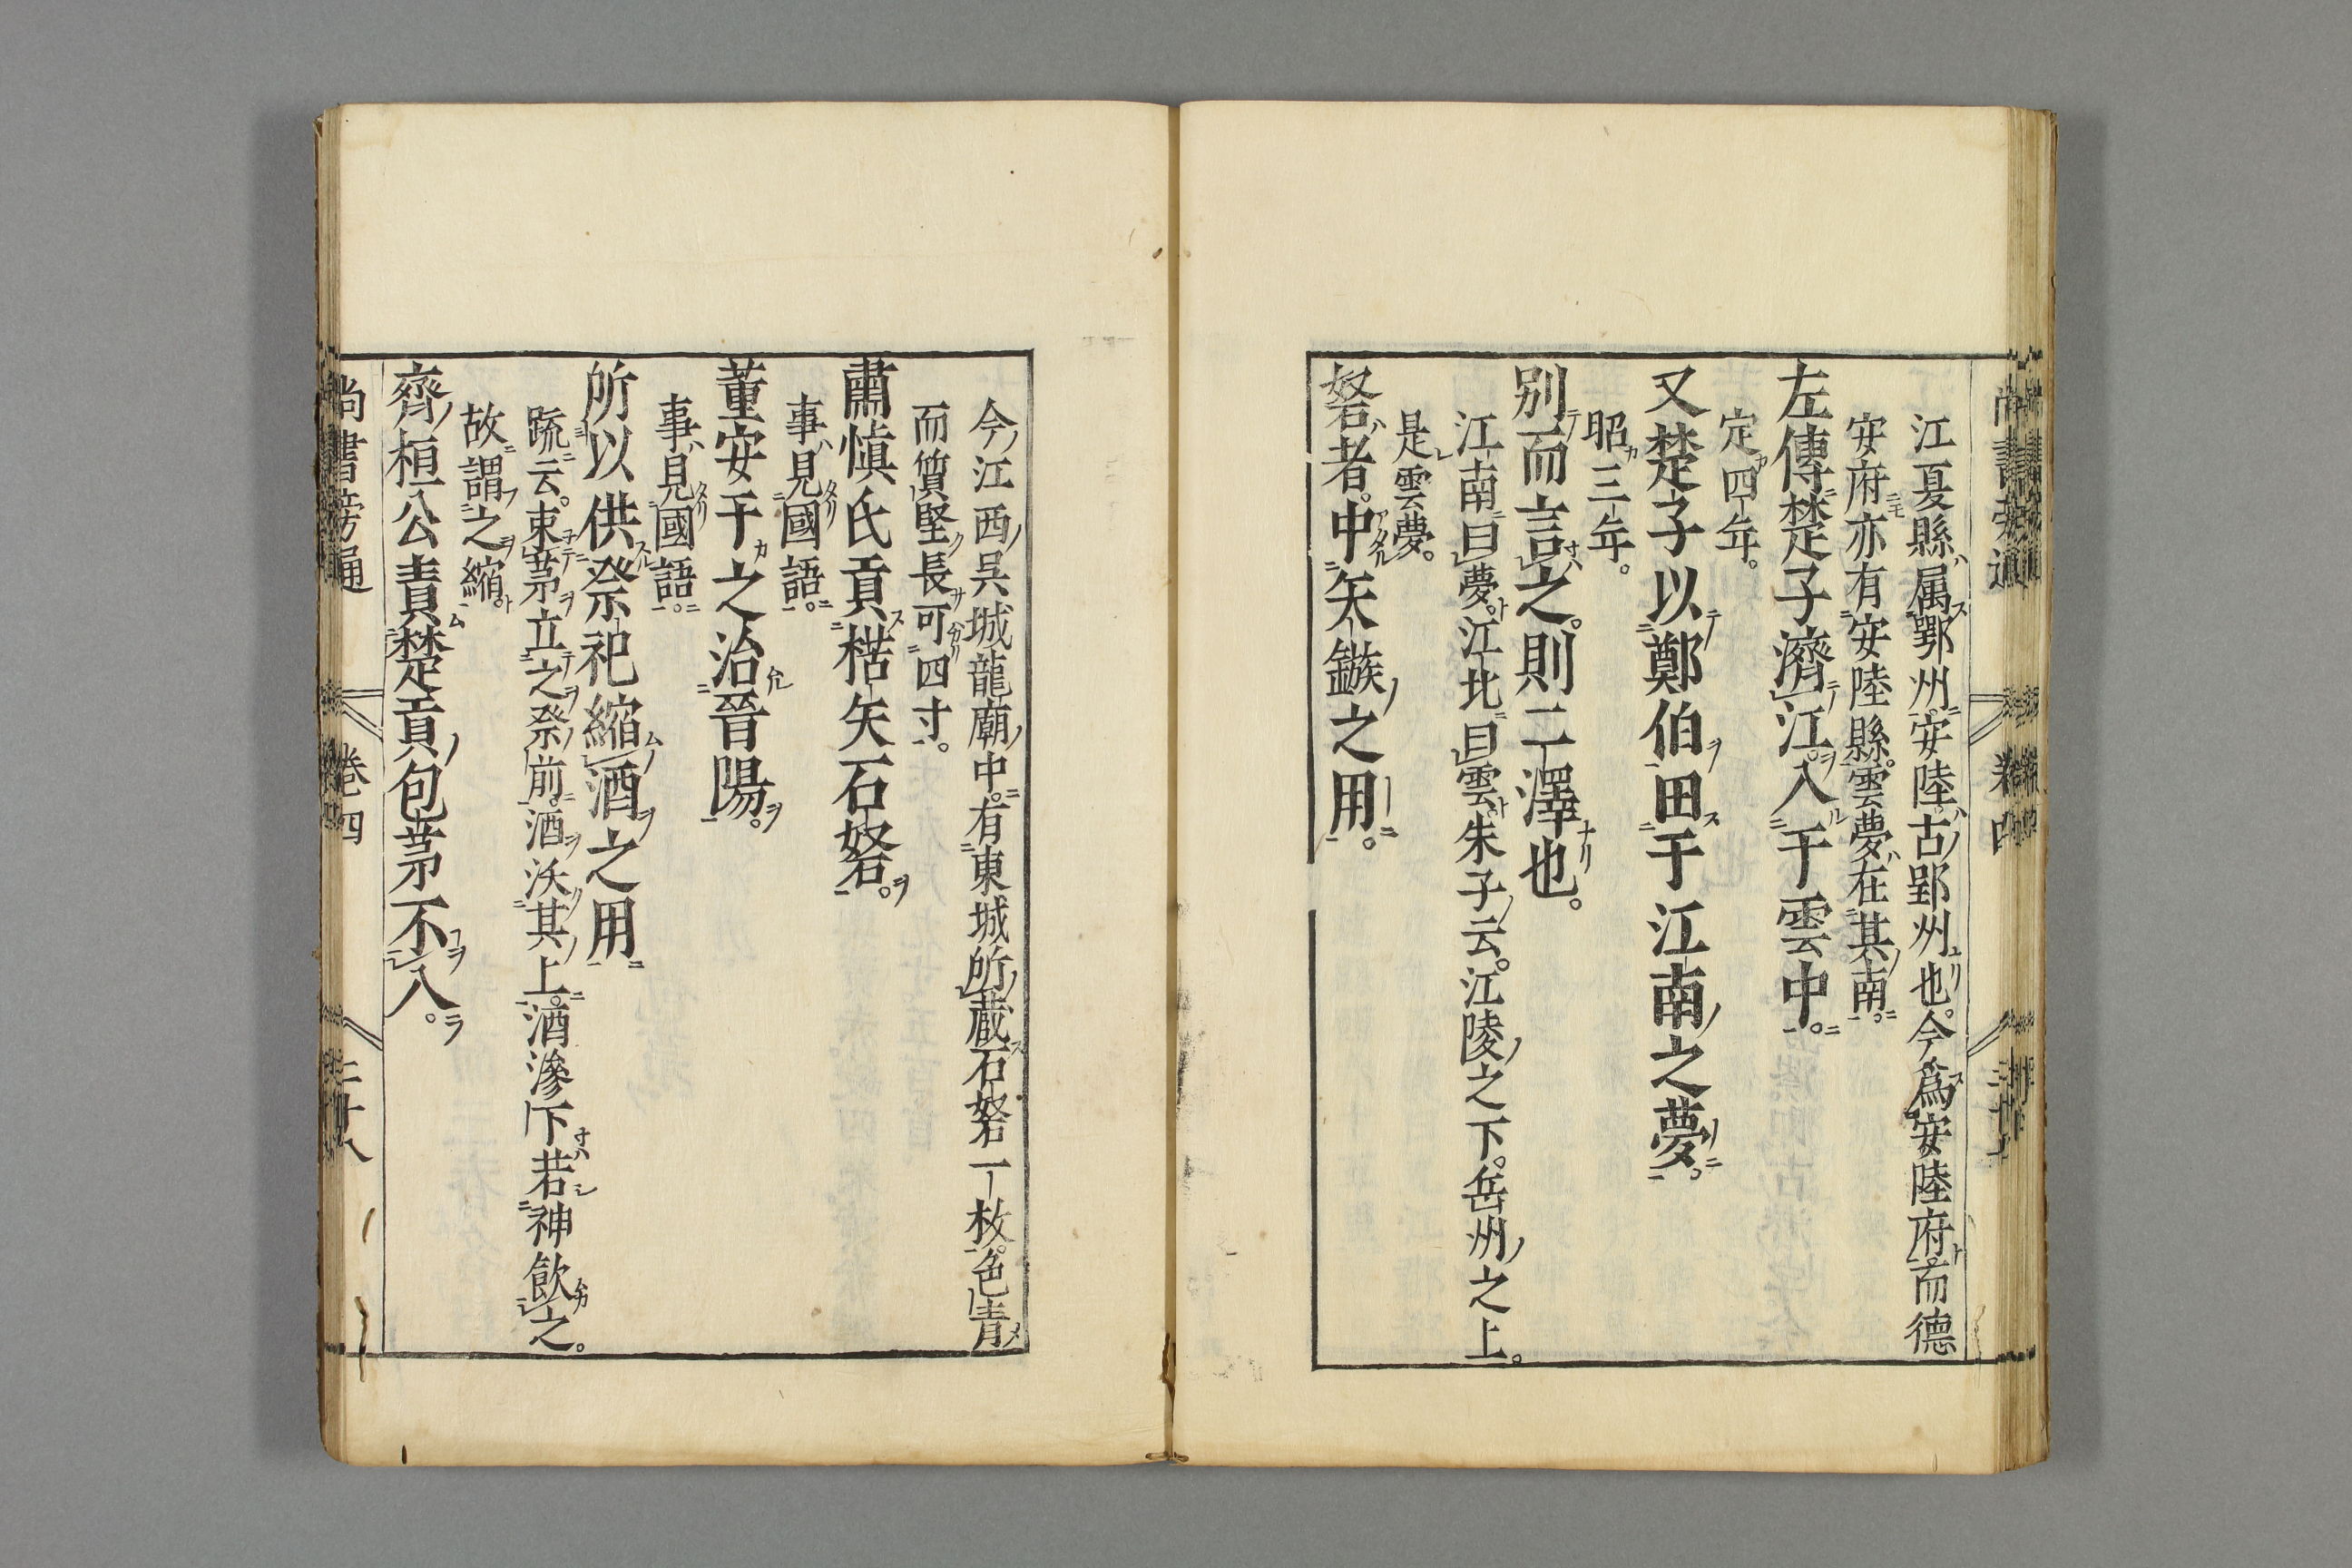 江夏縣属鄂州安陸古鄖州也今爲安陸府而德
安府亦有安陸縣雲夢在其南
左傳楚子濟江入于雲中
定四年
又楚子以鄭伯田于江南之夢
昭三年
别而言之則二澤也
江南曰夢江北曰雲朱子云江陵之下岳州之上
是雲夢
砮者中矢鏃之用
今江西吴城龍廟中有東城所蔵石砮一枚色青
而質堅長可四寸
肅愼氏貢楛矢石砮
事見國語
董安于之治晉陽
事見國語
所以供祭祀縮酒之用
䟽云束茅立之祭前酒沃其上酒滲下若神飲之
故謂之縮
齊桓公責楚貢包茅不入
尚書旁通 卷四 二十八